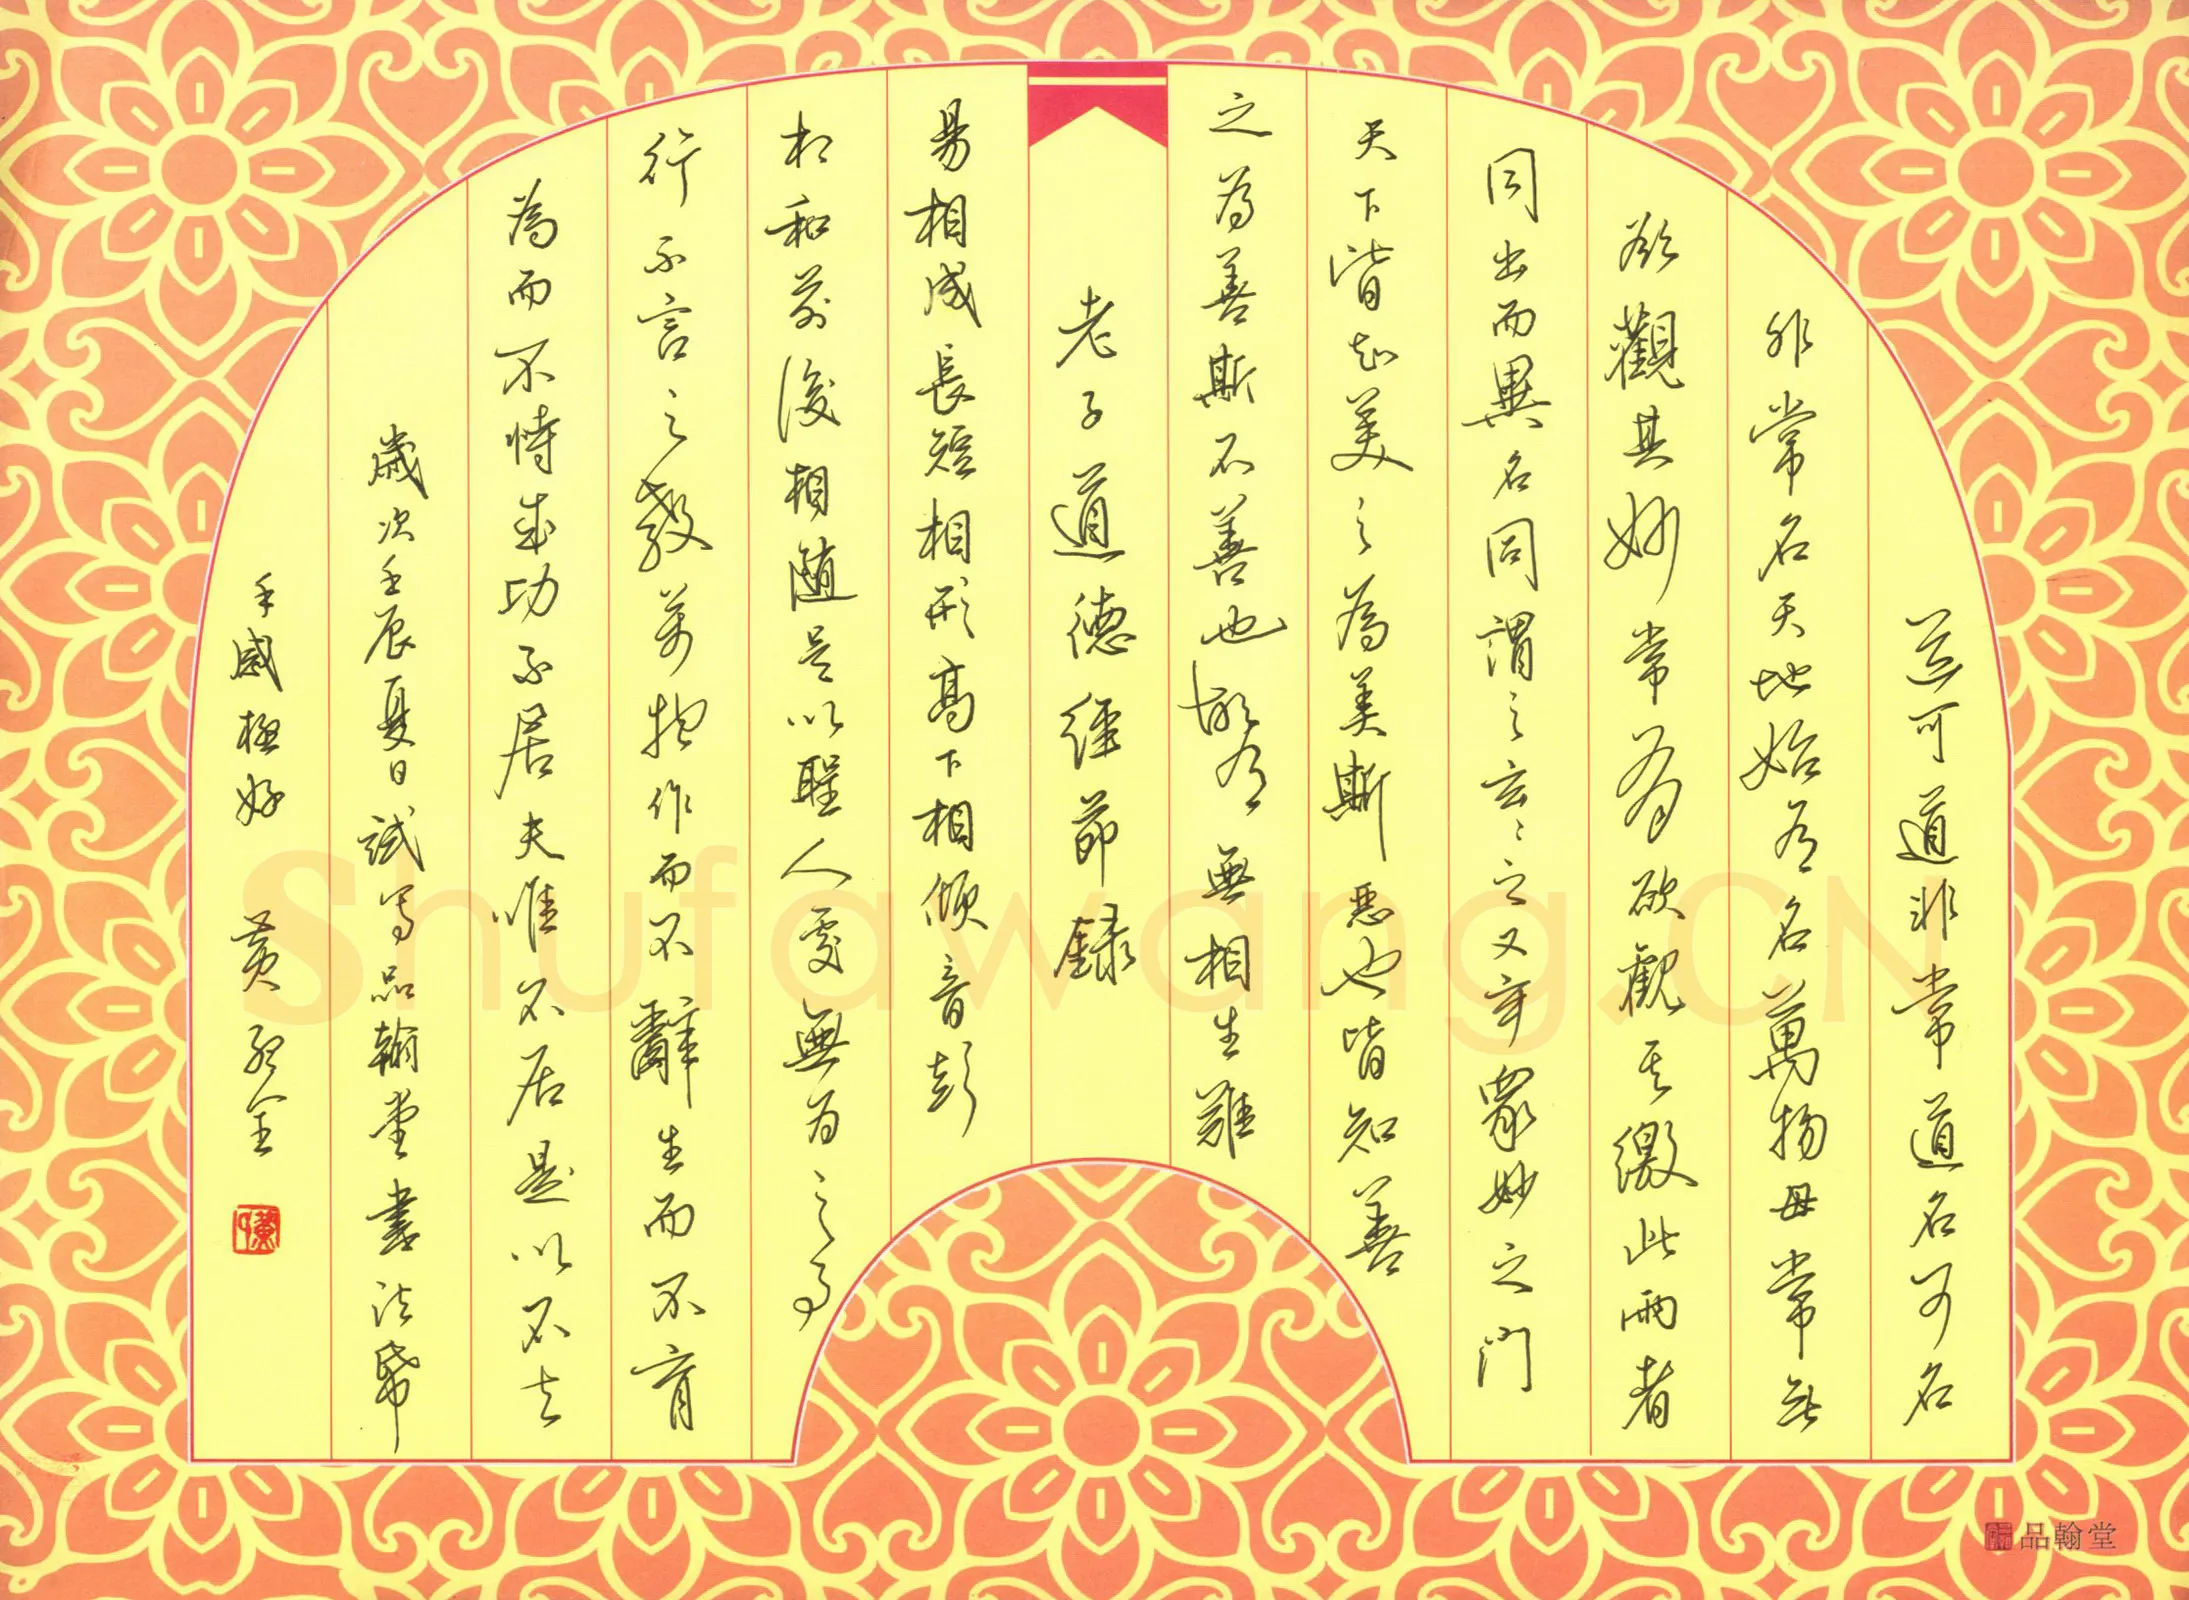 道可道非常道名可名
非常名天地始有名萬物母常無
欲觀其妙常有欲觀其徼此兩者
同出而異名同謂之玄〻之又玄眾妙之門
天下皆知美之為美斯惡也皆知善
之為善斯不善也故有無相生難
老子道德經節錄
易相成長短相形高下相傾音聲
相和前後相隨是以聖人處無為之事
行不言之教萬物作而不辭生而不育
為而不恃成功不居夫唯不居是以不去
歲次壬辰夏日試寫品翰堂書法帋
手感極好 黃
Shufawang.CN
品翰堂